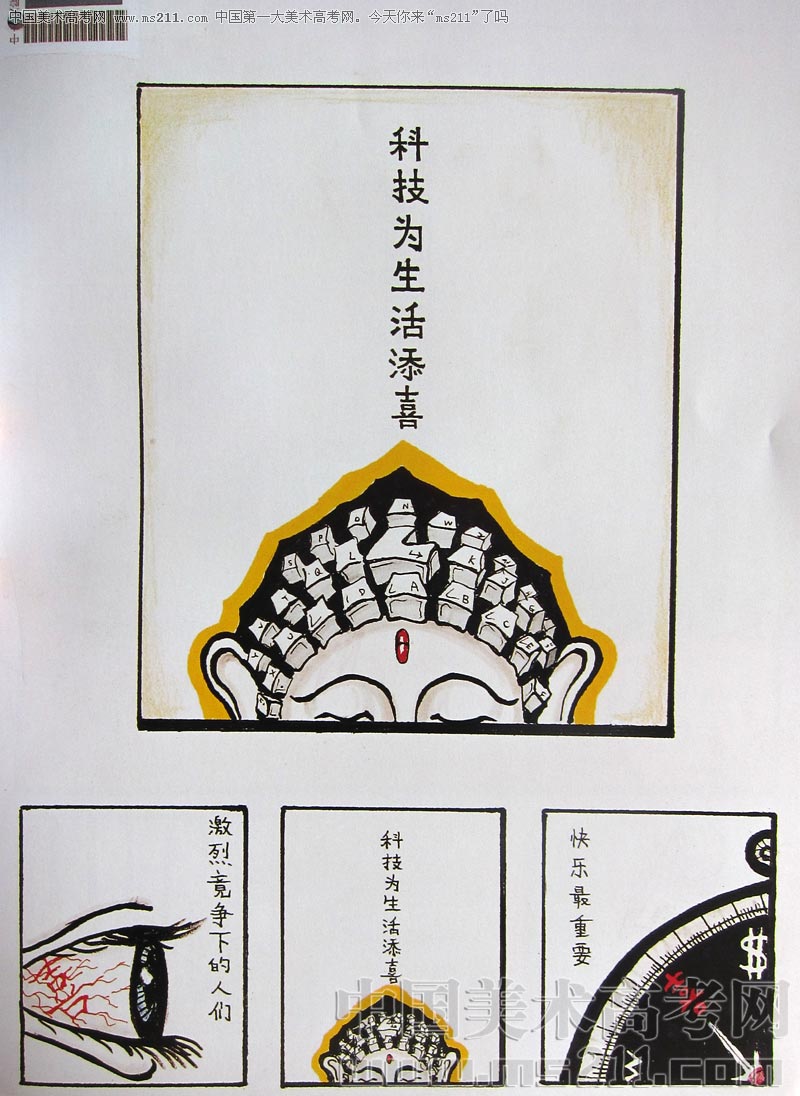 中国美术高考网 www.ms211.com 中国第一大美术高考网。今天你来“ms211”了吗
科技为生活添喜
N
O W
P
S L K
Q J
T I D A B
J C
激烈竟争下的人们
科技为生活添喜
快乐最重要
$
中国美术高考网
www.ms211.com